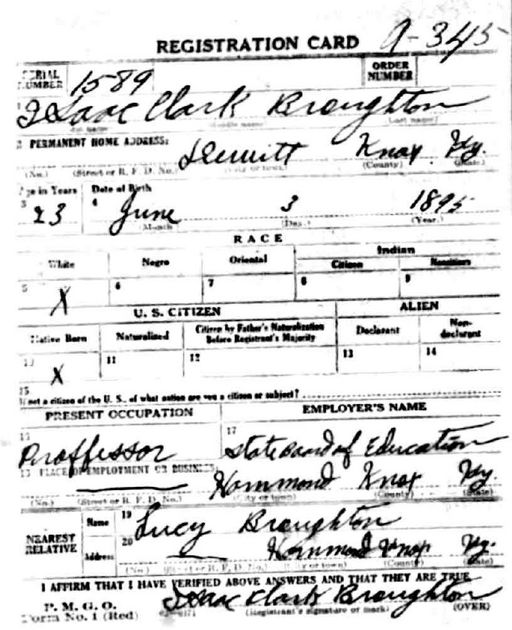 REGISTRATION CARD A-345
SERIAL NUMBER 1589 ORDER NUMBER
1 Isaac Clark Broughton
(First name) (Middle name) (Last name)
2 PERMANENT HOME ADDRESS:
Dewitt Knox Ky.
(No.) (Street or R. F. D. No.) (City or town) (County) (State)
Age in Years Date of Birth
3 23 4 June 3 1895
(Month) (Day.) (Year.)
RACE
White Negro Oriental Indian
Citizen Noncitizen
5 X 6 7 8 9
U. S. CITIZEN ALIEN
Native Born Naturalized Citizen by Father's Naturalization Before Registrant's Majority Declarant Non-declarant
10 X 11 12 13 14
15
If not a citizen of the U. S., of what nation are you a citizen or subject?
PRESENT OCCUPATION EMPLOYER'S NAME
16 Proffessor 17 State Board of Education
18 PLACE OF EMPLOYMENT OR BUSINESS:
Hammond Knox Ky
(No.) (Street or R. F. D. No.) (City or town) (County) (State)
NEAREST RELATIVE Name 19 Lucy Broughton
Address 20 Hammond Knox Ky.
(No.) (Street or R. F. D. No.) (City or town) (County) (State)
I AFFIRM THAT I HAVE VERIFIED ABOVE ANSWERS AND THAT THEY ARE TRUE
P. M. G. O.
Form No. 1 (Red) Isaac Clark Broughton
(Registrant's signature or mark) (OVER)